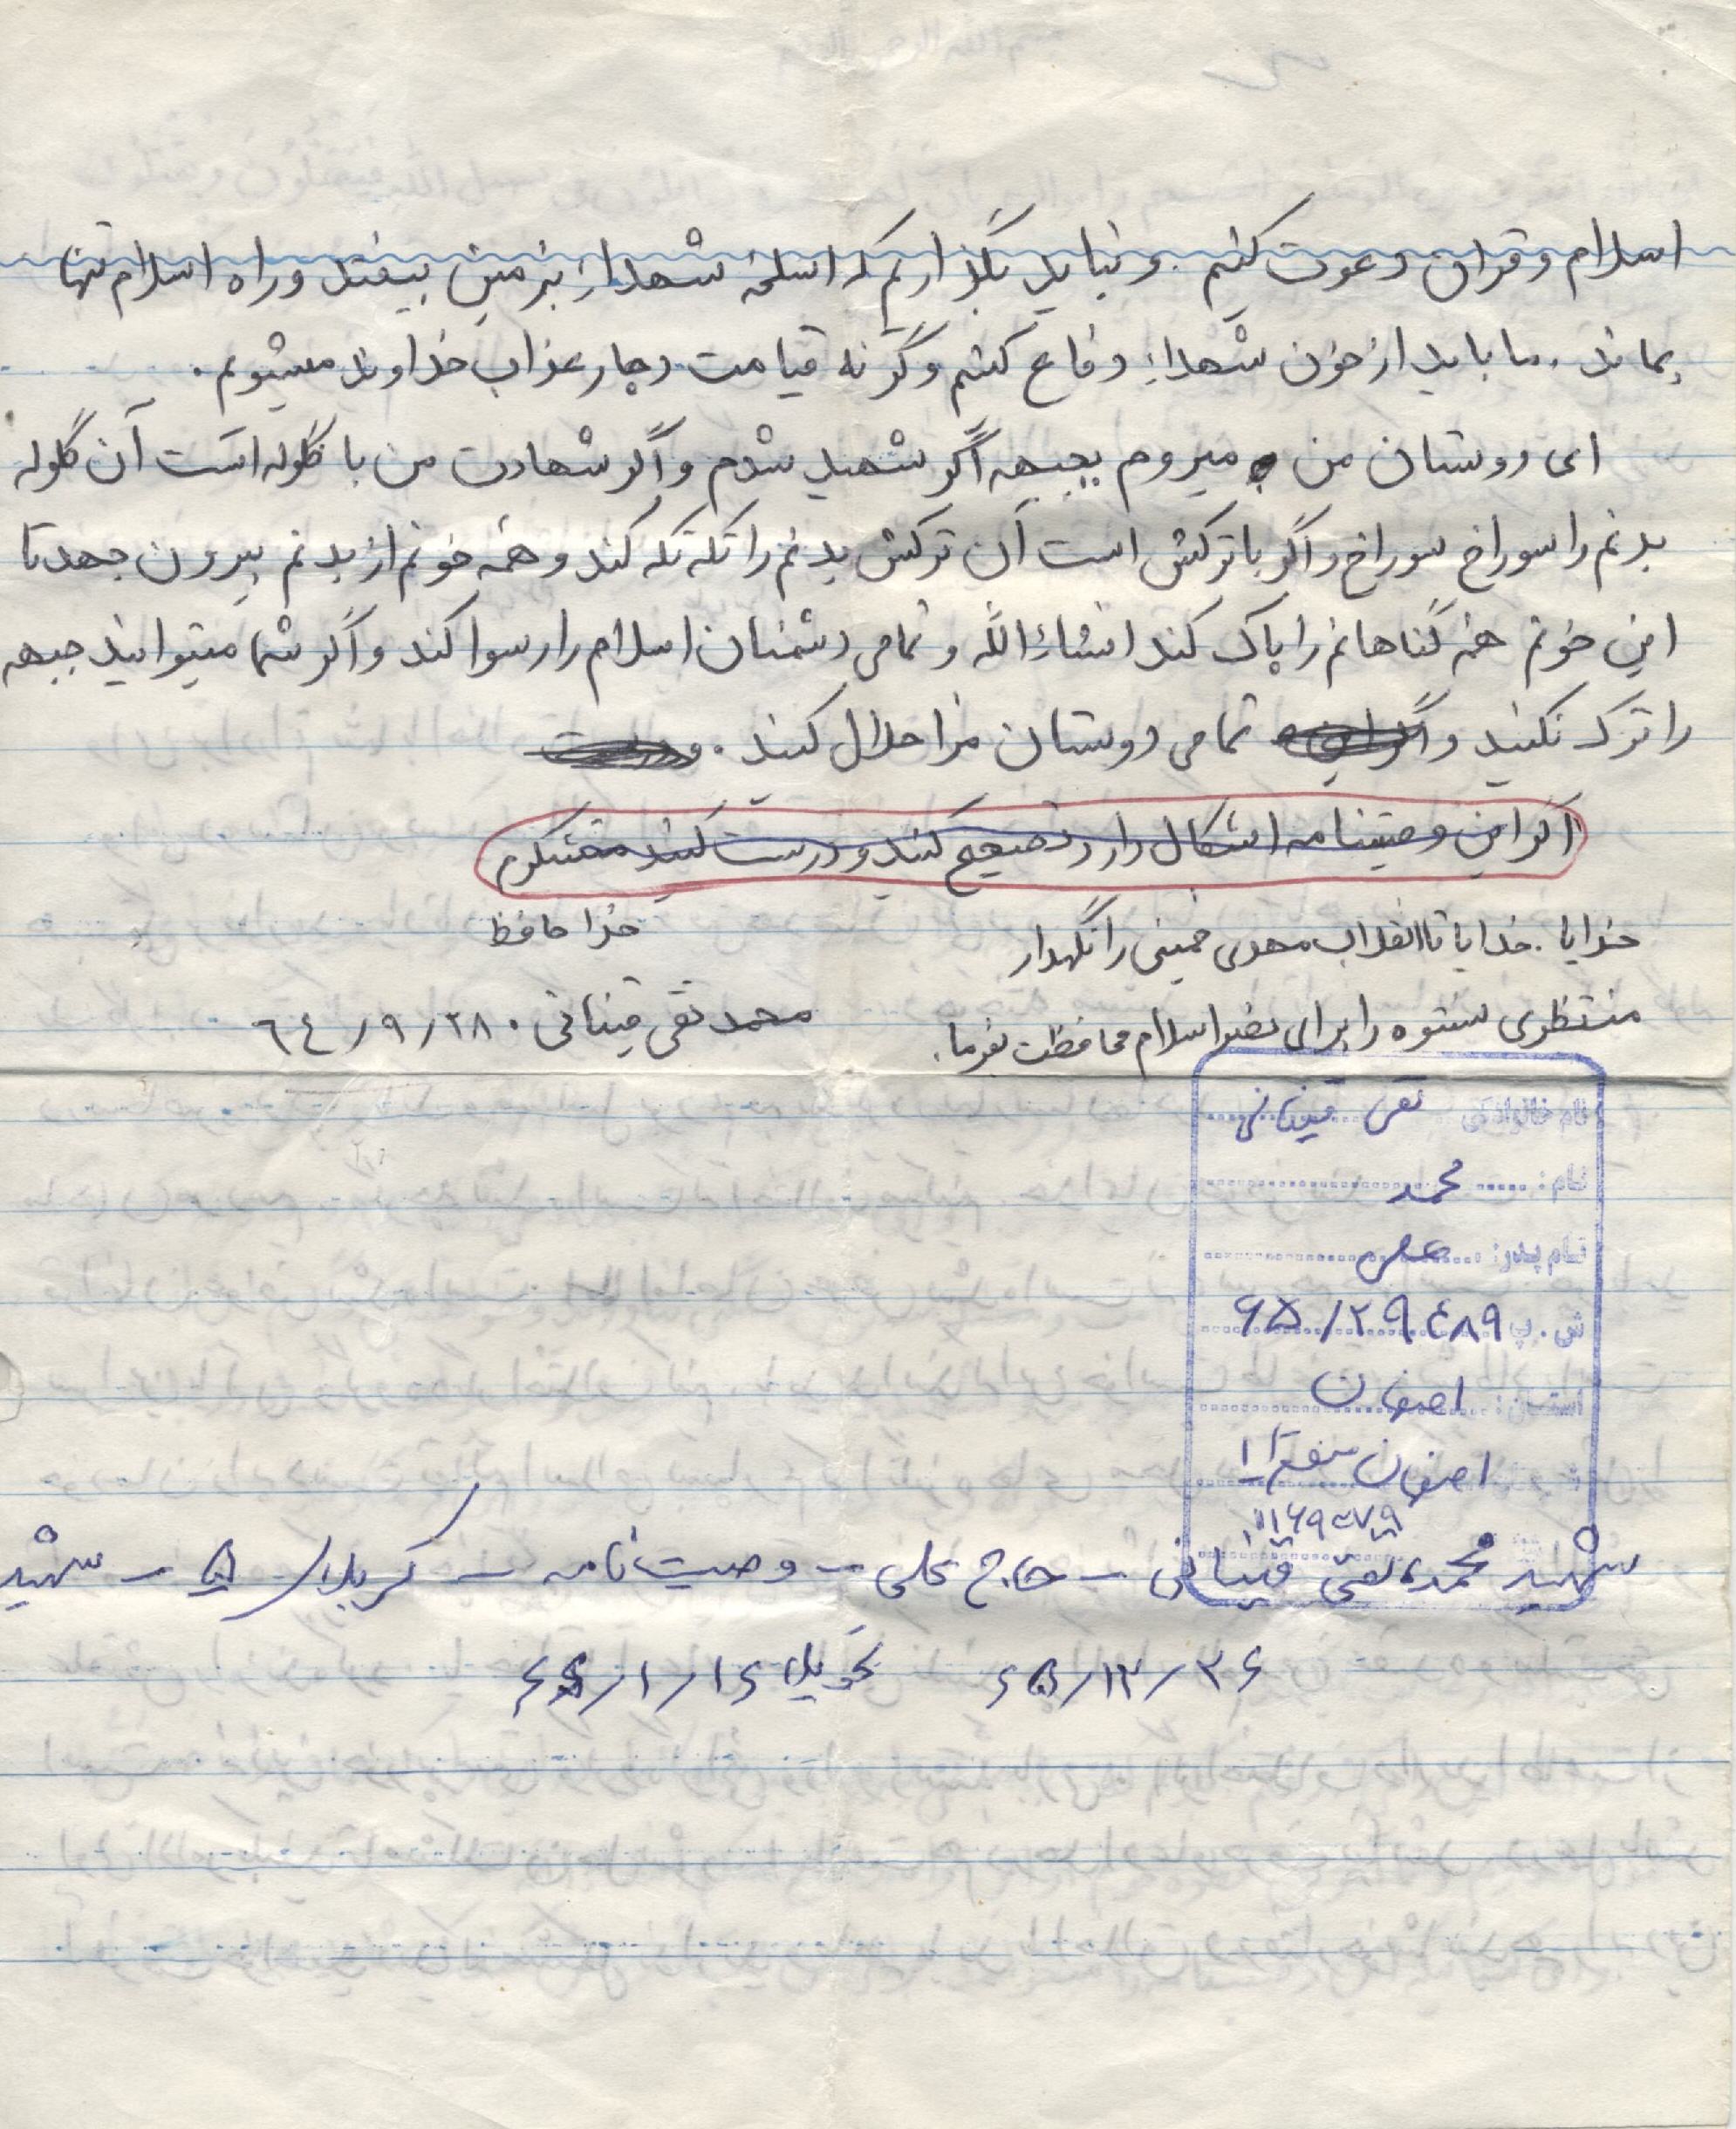 اسلام و قران دعوت کنیم. و نباید بگذاریم که اسلحهٔ شهداء بزمین بیفتد و راه اسلام تنها
بماند. ما باید از خون شهداء دفاع کنیم وگرنه قیامت دچار عذاب خداوند میشویم.
ای دوستان من میروم بجبهه اگر شهید شدم و اگر شهادت من با گلوله است آن گلوله
بدنم را سوراخ سوراخ و اگر با ترکش است آن ترکش بدنم را تکه تکه کند و همه خونم از بدنم بیرون جهد تا
این خونم همه گناهانم را پاک کند انشاءالله و تمامی دشمنان اسلام را رسوا کند و اگر شما میتوانید جبهه
را ترک نکنید و تمامی دوستان مرا حلال کنید.
اگر این وصیتنامه اشکال دارد تصحیح کنید و درست کنید متشکرم
خدایا. خدایا تا انقلاب مهدی خمینی را نگهدار
خدا حافظ
منتظری ستوه را برای نصر اسلام محافظت بفرما.
محمد تقی قینانی ۶۴/۹/۲۸
نام خانوادگی تقی قینانی
نام: محمد
نام پدر: علی
ش. پ ۶۵/۲۹۴۸۹
استان: اصفهان
اصفهان منطقه ۱
شهید محمد تقی قینانی - حاج علی - وصیت نامه - کربلای ۵ - شهید
۶۵/۱۲/۲۶ تحویل ۶۶/۱/۱۶